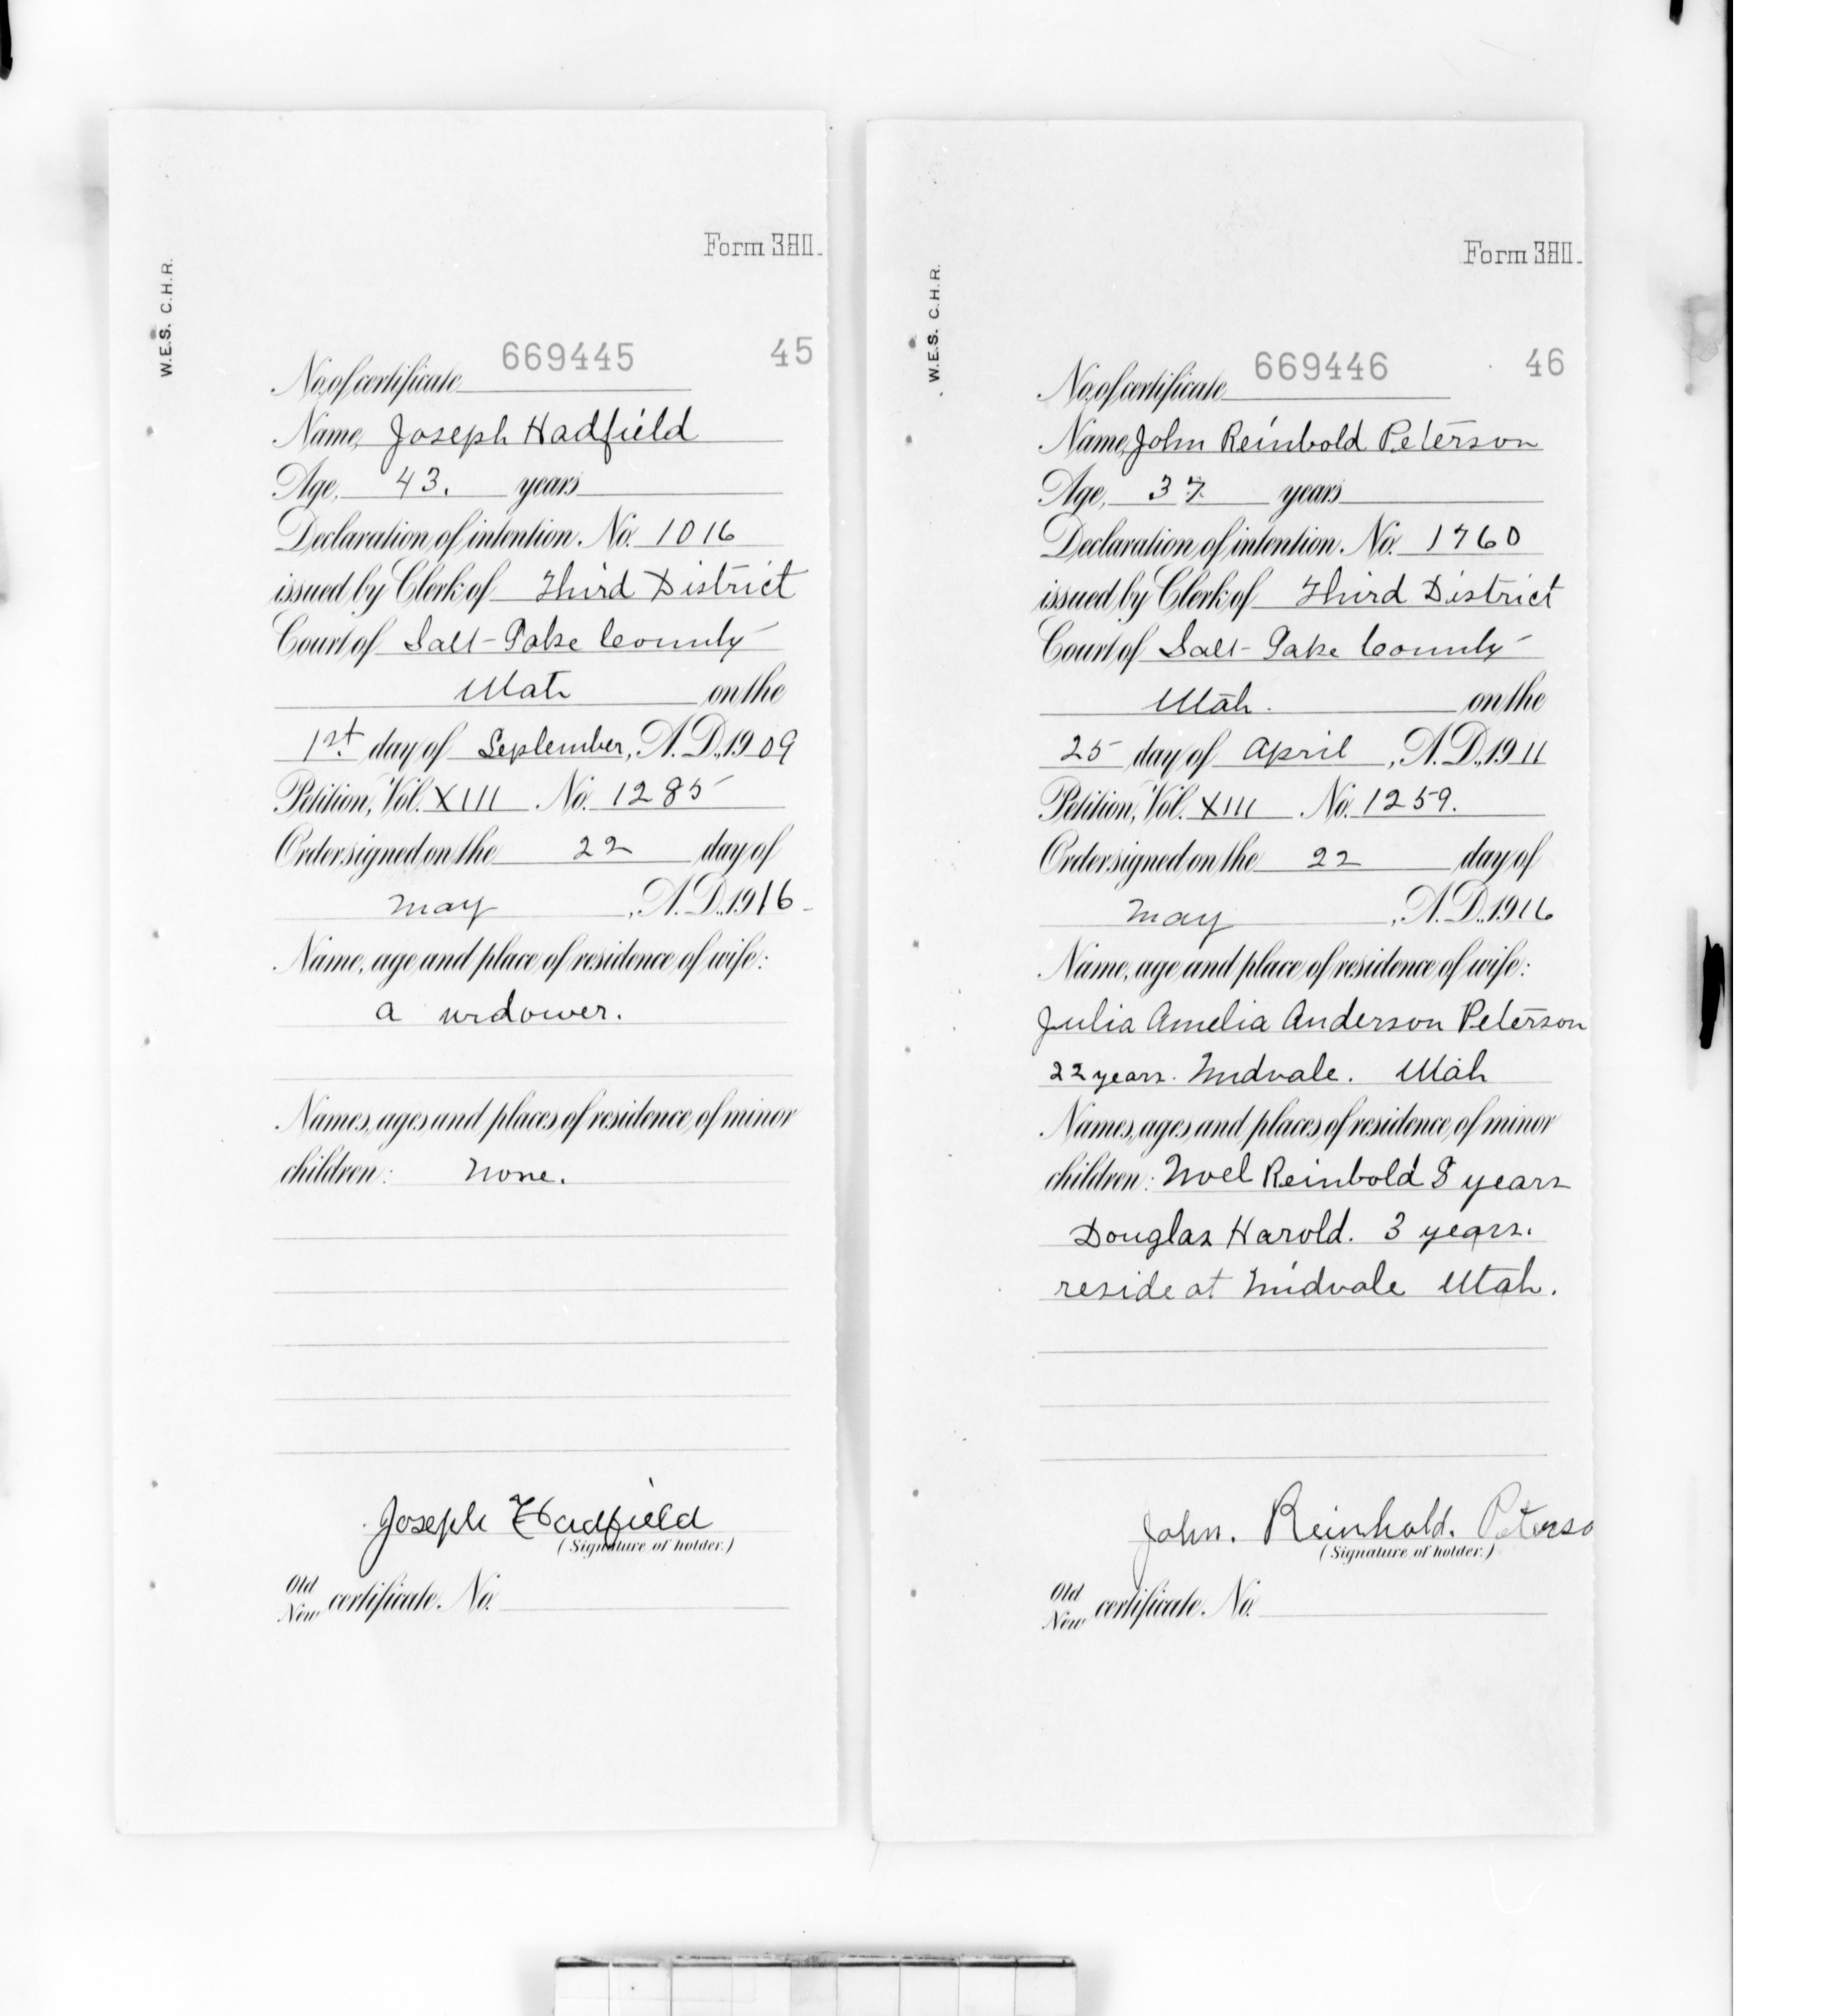 Form 380.
W.E.S. C.H.R.
669445 45
No. of certificate
Name, Joseph Hadfield
Age, 43. years
Declaration of intention. No. 1016
issued by Clerk of Third District
Court of Salt Lake County
Utah on the
1st. day of September, A.D. 1909
Petition, Vol. XIII No. 1285
Order signed on the 22 day of
May, A.D. 1916
Name, age and place of residence of wife:
a widower.
Names, ages and places of residence of minor
children: None.
Joseph Hadfield
(Signature of holder.)
Old
New certificate. No.
Form 380.
W.E.S. C.H.R.
669446 46
No. of certificate
Name, John Reinbold Peterson
Age, 37 years
Declaration of intention. No. 1760
issued by Clerk of Third District
Court of Salt Lake County
Utah. on the
25 day of April, A.D. 1911
Petition, Vol. XIII No. 1259.
Order signed on the 22 day of
May, A.D. 1916
Name, age and place of residence of wife:
Julia Amelia Anderson Peterson
22 years. Midvale. Utah
Names, ages and places of residence of minor
children: Noel Reinbold 8 years
Douglas Harold. 3 years.
reside at Midvale Utah.
John. Reinhold. Peterso
(Signature of holder.)
Old
New certificate. No.